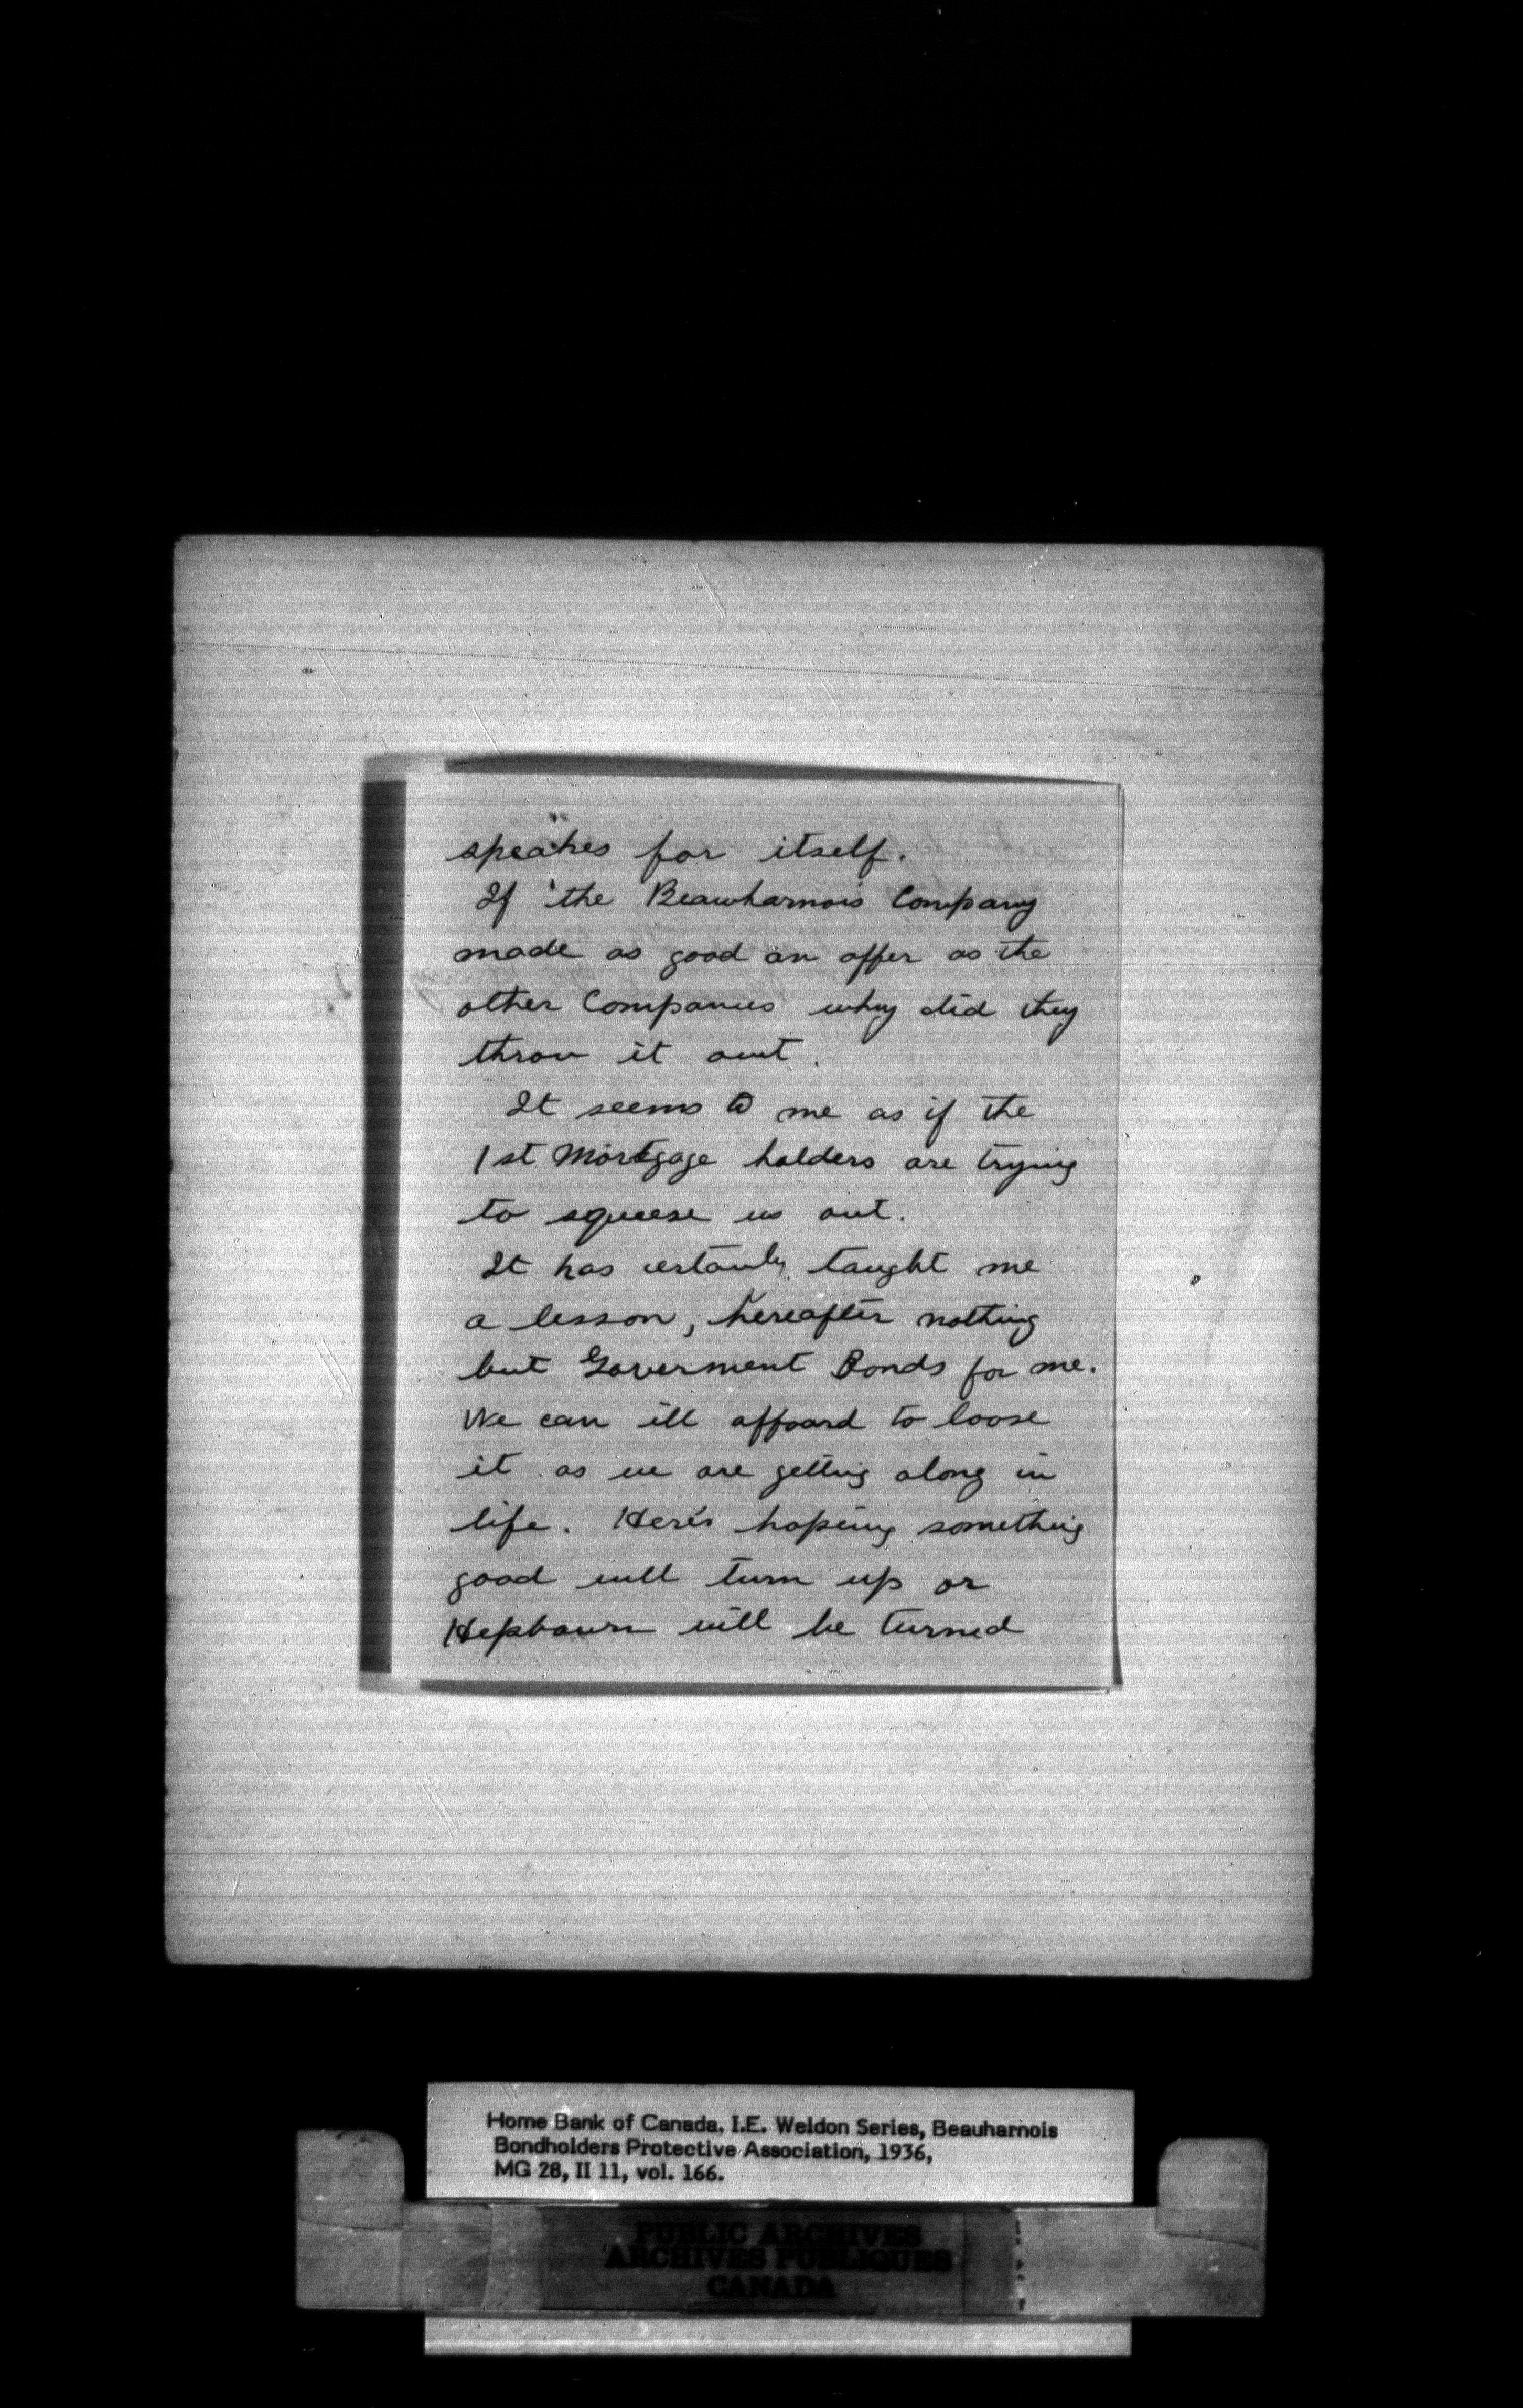 speakes for itself.
If the Beauharnois Company
made as good an offer as the
other Companies why did they
throu it out.
It seems to me as if the
1st Mortgage holders are trying
to squeese us out.
It has certainly taught me
a lesson, hereafter nothing
but Goverment Bonds for me.
We can ill affoard to loose
it as we are getting along in
life. Here's hopeing something
good will turn up or
Hepbourn will be turned
Home Bank of Canada, I.E. Weldon Series, Beauharnois
Bondholders Protective Association, 1936,
MG 28, II 11, vol. 166.
PUBLIC ARCHIVES
ARCHIVES PUBLIQUES
CANADA